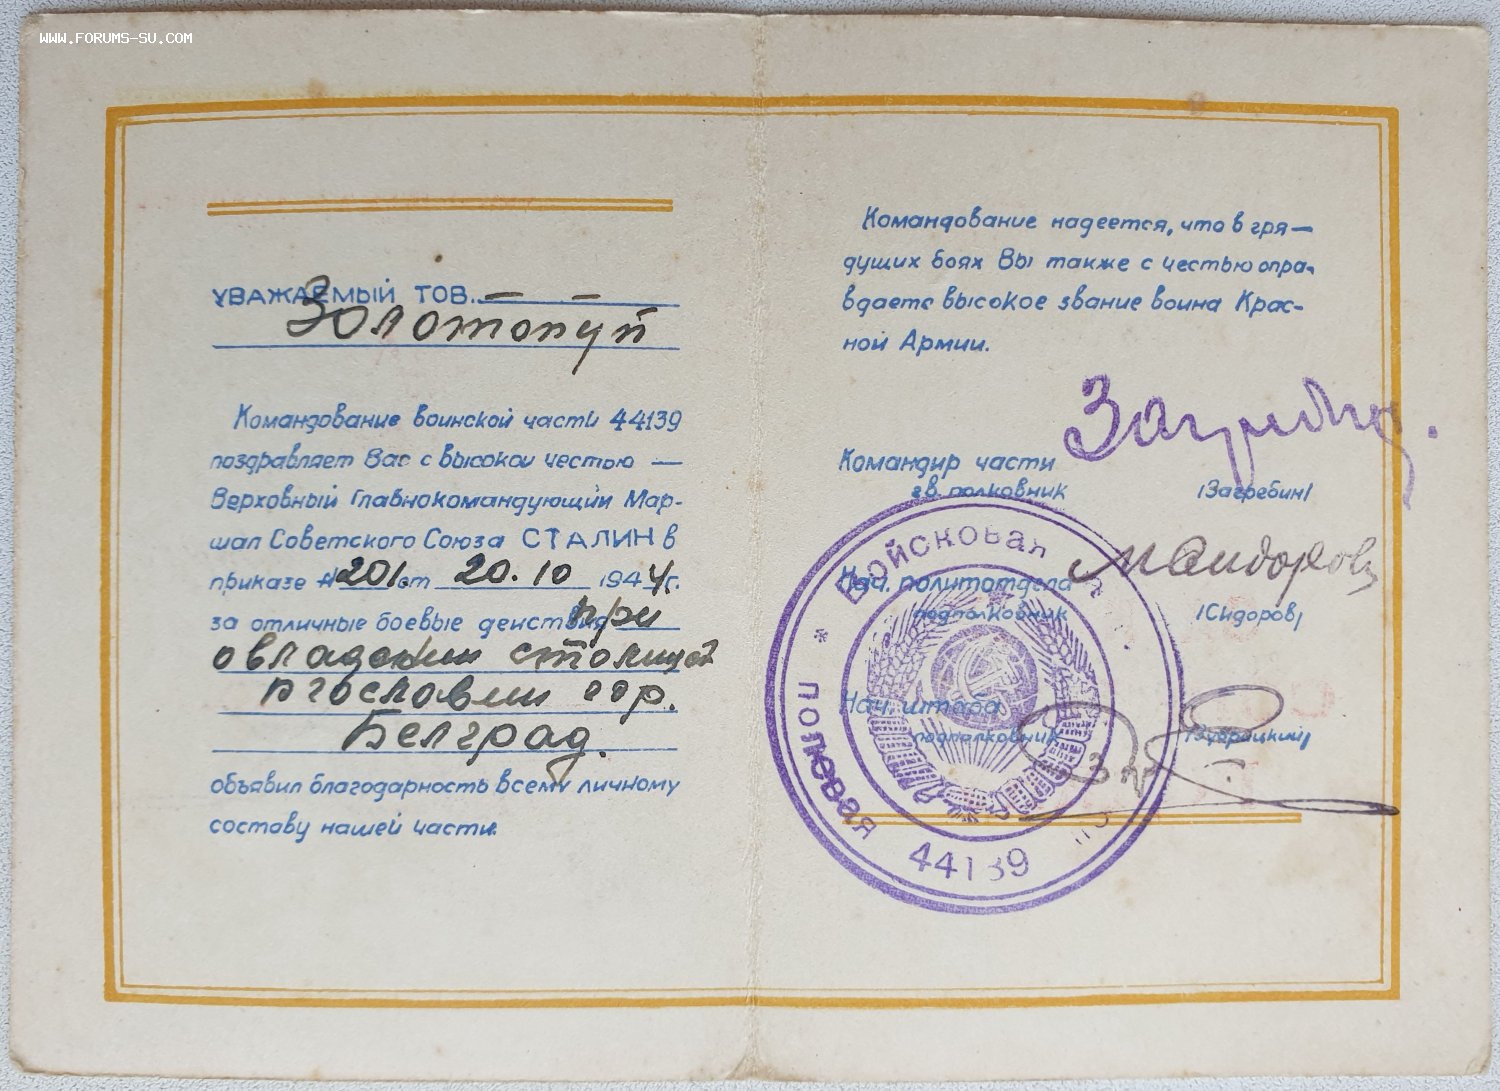 WWW.FORUMS-SU.COM
УВАЖАЕМЫЙ ТОВ.
Золотопуп
Командование воинской части 44139
поздравляет Вас с высокой честью —
Верховный Главнокомандующий Мар-
шал Советского Союза СТАЛИН в
приказе № 201 от 20.10 1944 г.
за отличные боевые действия при
овладении столицей
Югославии гор.
Белград.
объявил благодарность всему личному
составу нашей части.
Командование надеется, что в гря—
дущих боях Вы также с честью опра-
вдаете высокое звание воина Крас-
ной Армии.
Загребин.
Командир части
гв. полковник /Загребин/
МСидоров
Нач. политотдела
подполковник /Сидоров/
Нач. штаба
подполковник
Войсковая часть
* полевая почта
44139